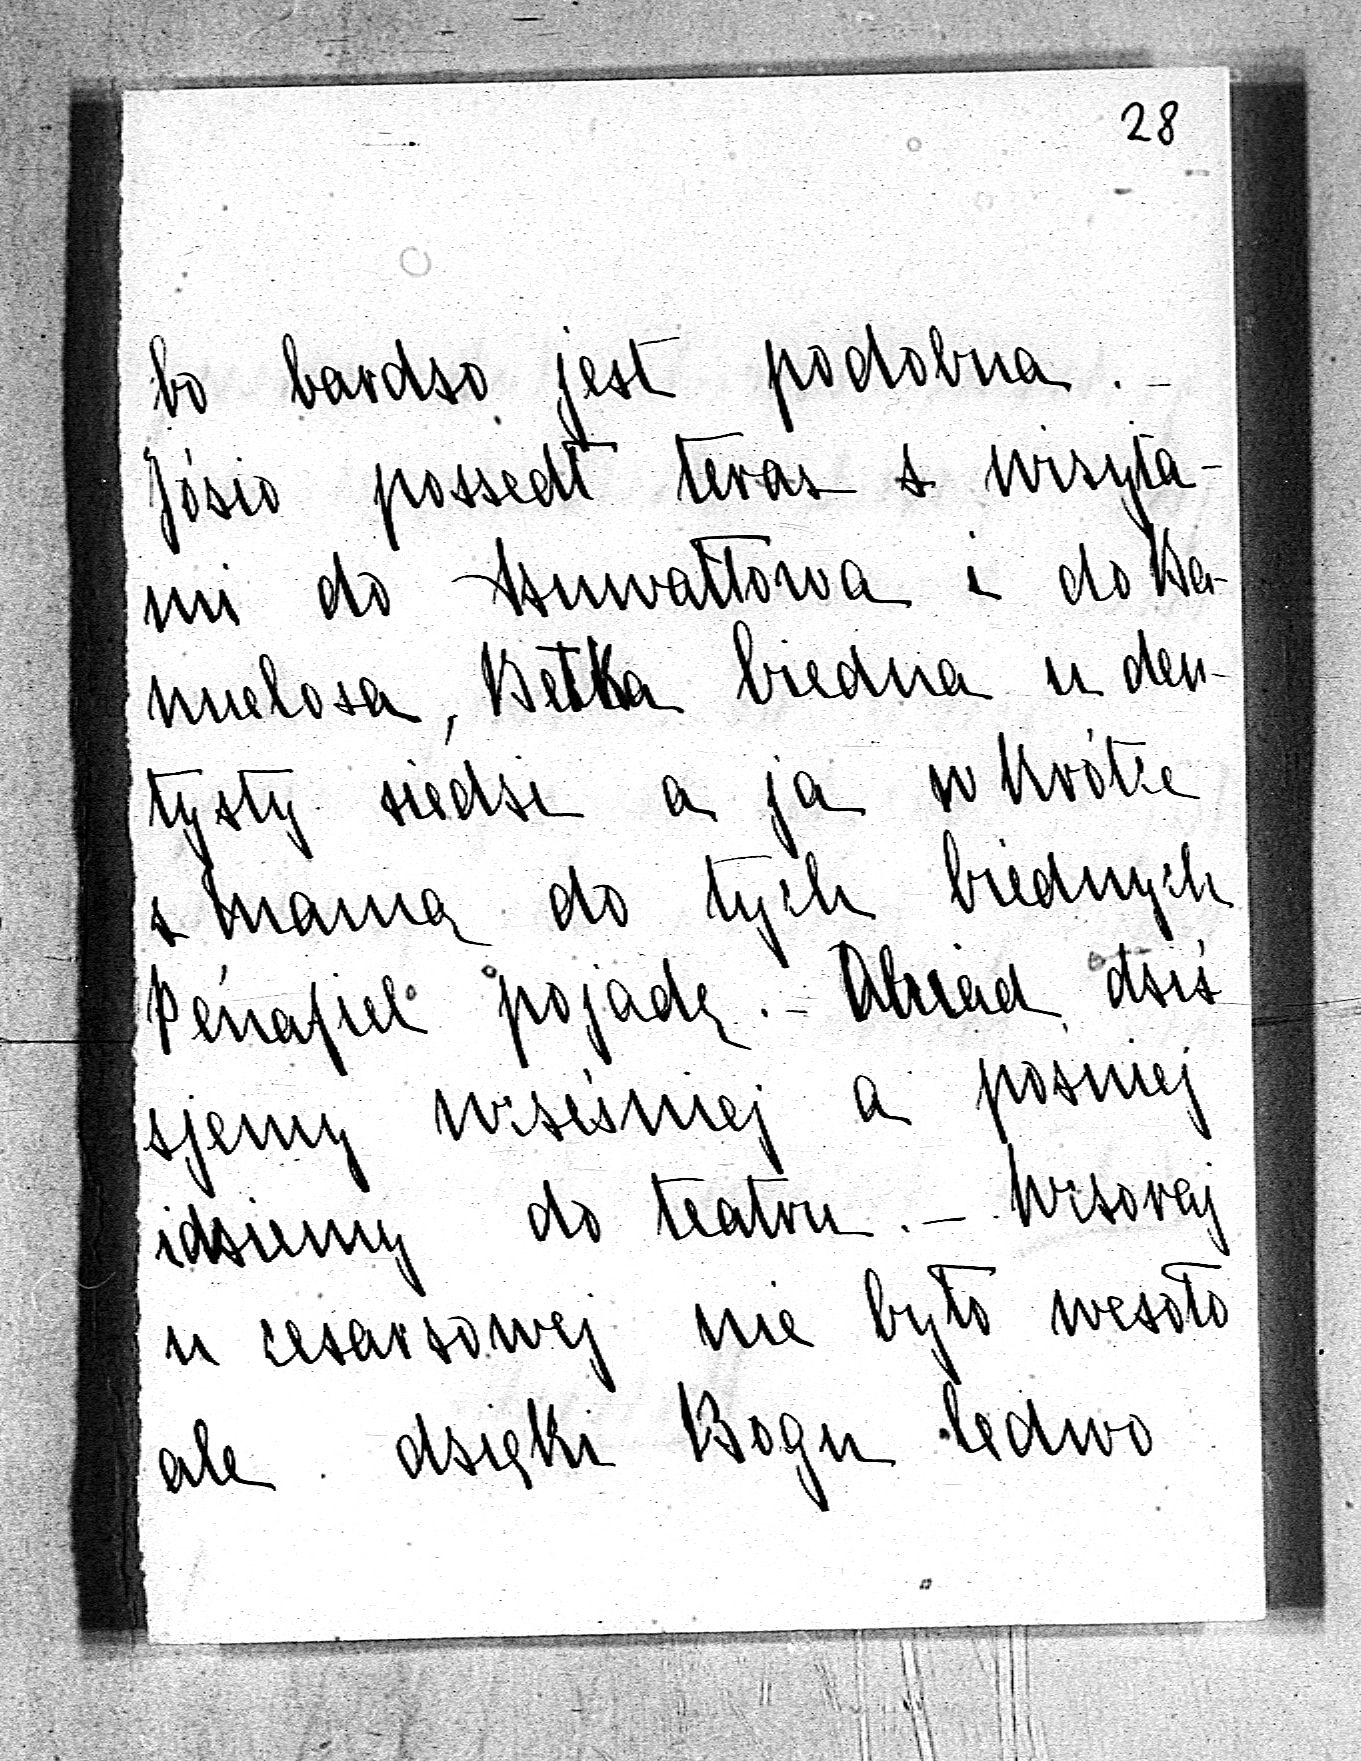 28
bo bardzo jest podobna. –
Józio poszedł teraz z wizyta-
mi do Szuwałowa i do Ba-
nuelosa, Betka biedna u den-
tysty siedzi a ja w krótce
z mamą do tych biednych
Peñafiel pojadę. – Obiad dziś
zjemy wcześniej a pózniej
idziemy do teatru. – Wczoraj
u cesarzowej nie było wesoło
ale dzięki Bogu ledwo